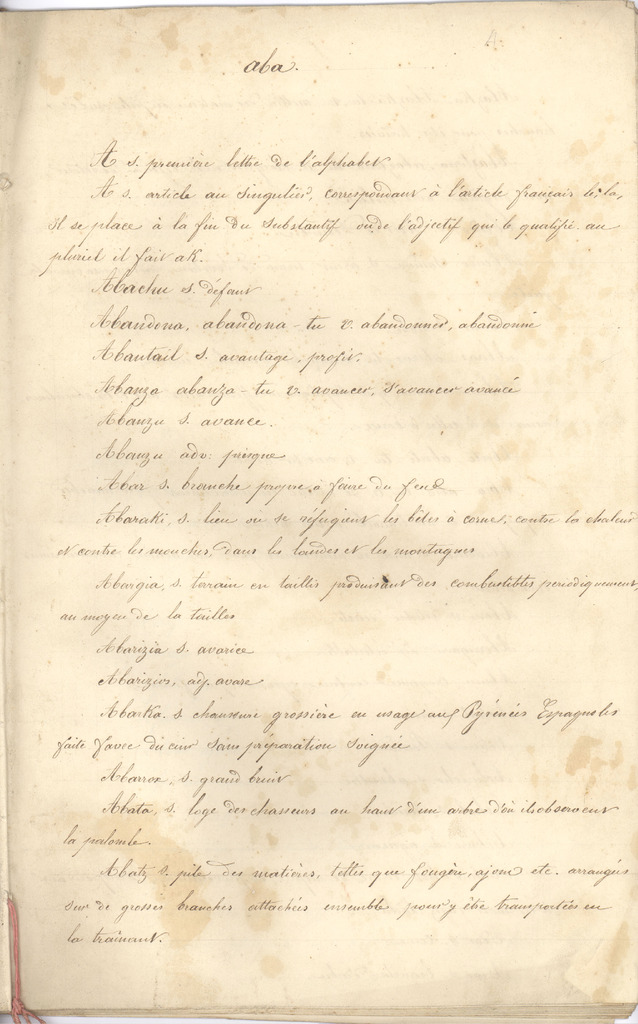 4.
aba.
A s. première lettre de l'alphabet
A s. article au singulier, correspondant à l'article français le, la,
il se place à la fin du substantif ou de l'adjectif qui le qualifie. au
pluriel il fait ak.
Abachu s. défaut
Abandona, abandona-tu v. abandonner, abandonné
Abantail s. avantage, profit.
Abanza abanza-tu v. avancer, s'avancer avancé
Abanzu s. avance.
Abanzu adv. presque
Abar s. branche propre à faire du feu
Abaraki, s. lieu ou se réfugient les bêtes à corne, contre la chaleur
et contre les mouches, dans les landes et les montagnes
Abargia, s. terrain en taillis produisant des combustibles periodiquement,
au moyen de la tailles
Abarizia s. avarice
Abarizios, adj. avare
Abarka. s chaussure grossière en usage aux Pyrénées Espagnoles
faite avec du cuir sans préparation soignée
Abarrox, s. grand bruit
Abata, s. loge des chasseurs au haut d'un arbre d'où ils observent
la palombe.
Abatz s. pile des matières, telles que fougère, ajonc etc. arrangées
sur de grosses branches attachées ensemble pour y être transportées en
la trainant.